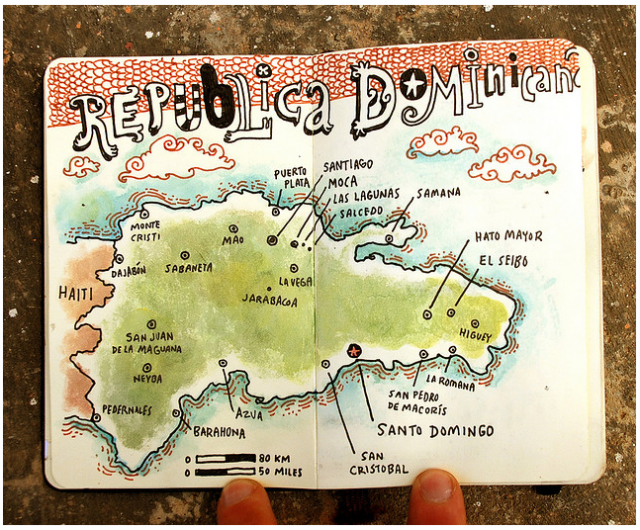 REPUbLica DOMinicana
PUERTO
PLATA
SANTIAGO
MOCA
LAS LAGUNAS
SALCEDO
SAMANA
MONTE
CRISTI
MAO
HATO MAYOR
EL SEIBO
DAJABÓN
SABANETA
LA VEGA
JARABACOA
HAITI
SAN JUAN
DE LA MAGUANA
HIGUEY
NEYBA
LA ROMANA
SAN PEDRO
DE MACORÍS
PEDERNALES
AZUA
BARAHONA
SANTO DOMINGO
SAN
CRISTOBAL
0 80 KM
0 50 MILES